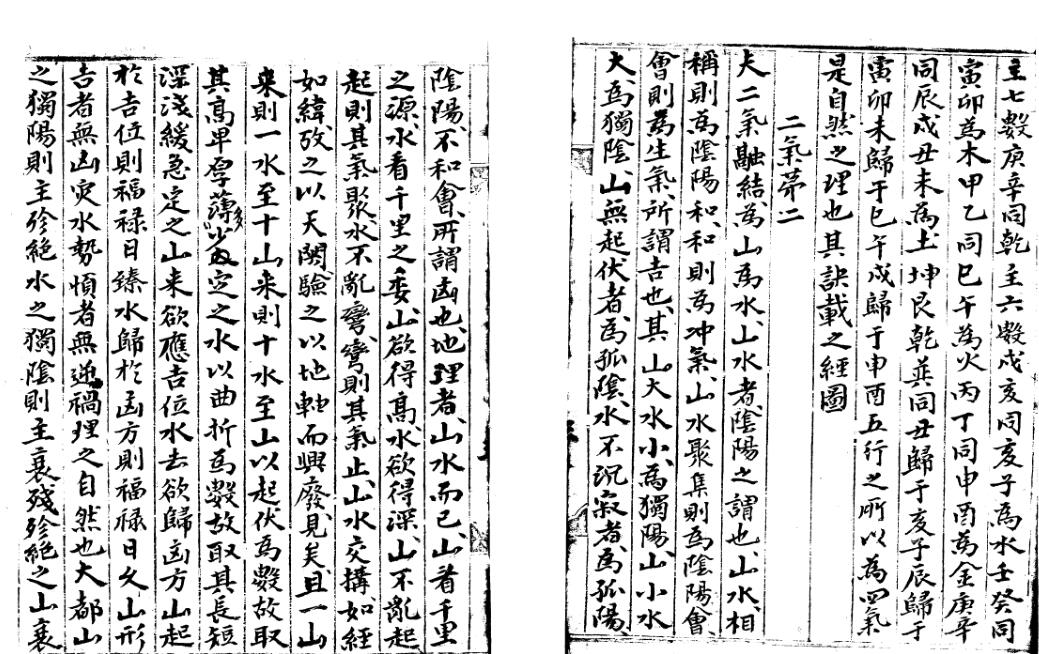 主七數庚辛同乾主六數戍亥同亥子為水壬癸同
寅卯為木甲乙同巳午為火丙丁同申酉為金庚辛
同辰戍丑未為土坤艮乾巽同丑歸于亥子辰歸于
寅卯未歸于巳午戍歸于申酉五行之所以為四氣
是自然之理也其訣載之經圖
二氣苐二
夫二氣融結為山為水山水者陰陽之謂也山水相
稱則為陰陽和和則為冲氣山水聚集則為陰陽會
會則為生氣所謂吉也其山大水小為獨陽山小水
大為獨陰山無起伏者為孤陰水不沉寂者為孤陽
陰陽不和會所謂凶也地理者山水而已山着千里
之源水看千里之委山欲得高水欲得深山不亂起
起則其氣聚水不亂彎彎則其氣止山水交搆如經
如緯攷之以天関驗之以地軸而興廢見矣且一山
来則一水至十山来則十水至山以起伏為數故取
其高卑厚薄多少定之水以曲折為數故取其長短
深淺緩急定之山来欲應吉位水去欲歸凶方山起
於吉位則福禄日臻水歸於凶方則福禄日久山形
吉者無凶灾水勢慎者無逆禍理之自然也大都山
之獨陽則主殄絶水之獨陰則主衰殘殄絶之山衰